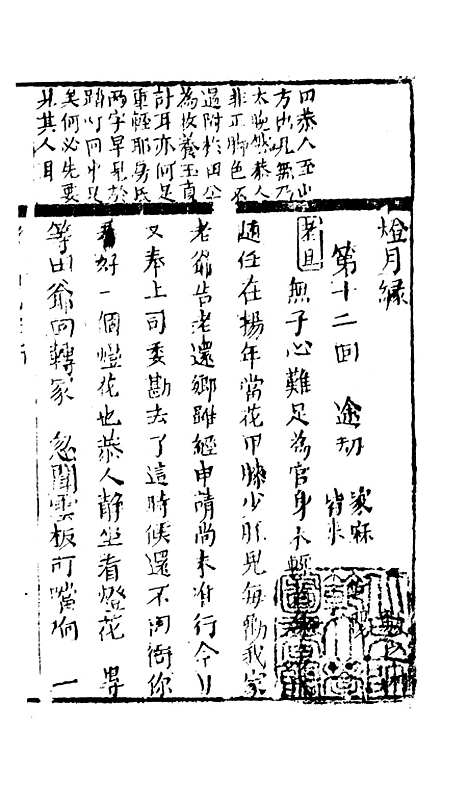 田恭人至山
方出凡無乃
太晚然恭人
非正脚色不
過附於田公
為收養玉貞
計耳亦何足
重輕耶房氏
兩字早見於
踏燈回中足
矣何必先要
見其人耳
燈月緣
第十二回 途劫 家麻
老旦 無子心難足為官身不輕
適任在揚年當花甲膝少肝兒每勸我家
老爺告老還鄉雖經申請尚未准行今日
又奉上司委勘去了這時候還不囘衙你
看好一個燈花也恭人靜坐看燈花 畧
等田爺囘轉家 忽聞雲板叮噹响 一